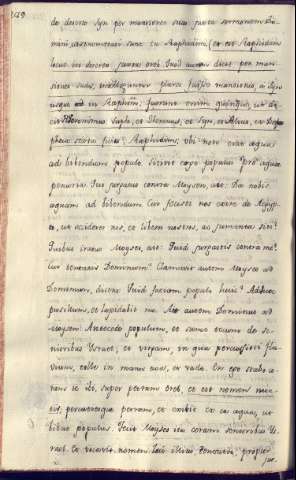 de deserto Syn per mansiones suas juxta sermonem Do-
mini, castrametati sunt in Raphidim, (et est Raphidim
locus in deserto juxta Oreb. Quid autem dicat per man-
siones suas, plures fuisse mansiones, a Syn
usque ad in Raphidim: fuerunt enim quinque, ut di-
cit Hieronimus
Raphidim; ubi non erat aqua
ad bibendum populo siti ergo populus prae aquae
penuria. Qui jurgatus contra Moysen, ait: Da nobis
aquam ad bibendum. Cur fecisti nos exire de Aegyp-
to, ut occideres nos, et liberos nostros, ac jumenta siti?
Quibus iratus Moyses, ait: Quid jurgatis contra me?
Cur tentatis Dominum? Clamavit autem Moyses ad
Dominum, dicens: Quid faciam populo huic? Adhuc
pusillum, et lapidabit me. Ait autem Dominus ad
Moysen: Antecede populum, et sume tecum de se-
nioribus Israel, et virgam, in qua percussisti flu-
vium, tolle in manu tua, et vade. En ego stabo co-
ram te ibi, super petram Oreb, et est nomen mon-
tis, percutiesque petram, et exibit ex ea aqua, ut
bibat populus. Fecit Moyses ita coram senioribus Is-
rael. Et vocavit nomen loci illius Tentatio, propter
jur-